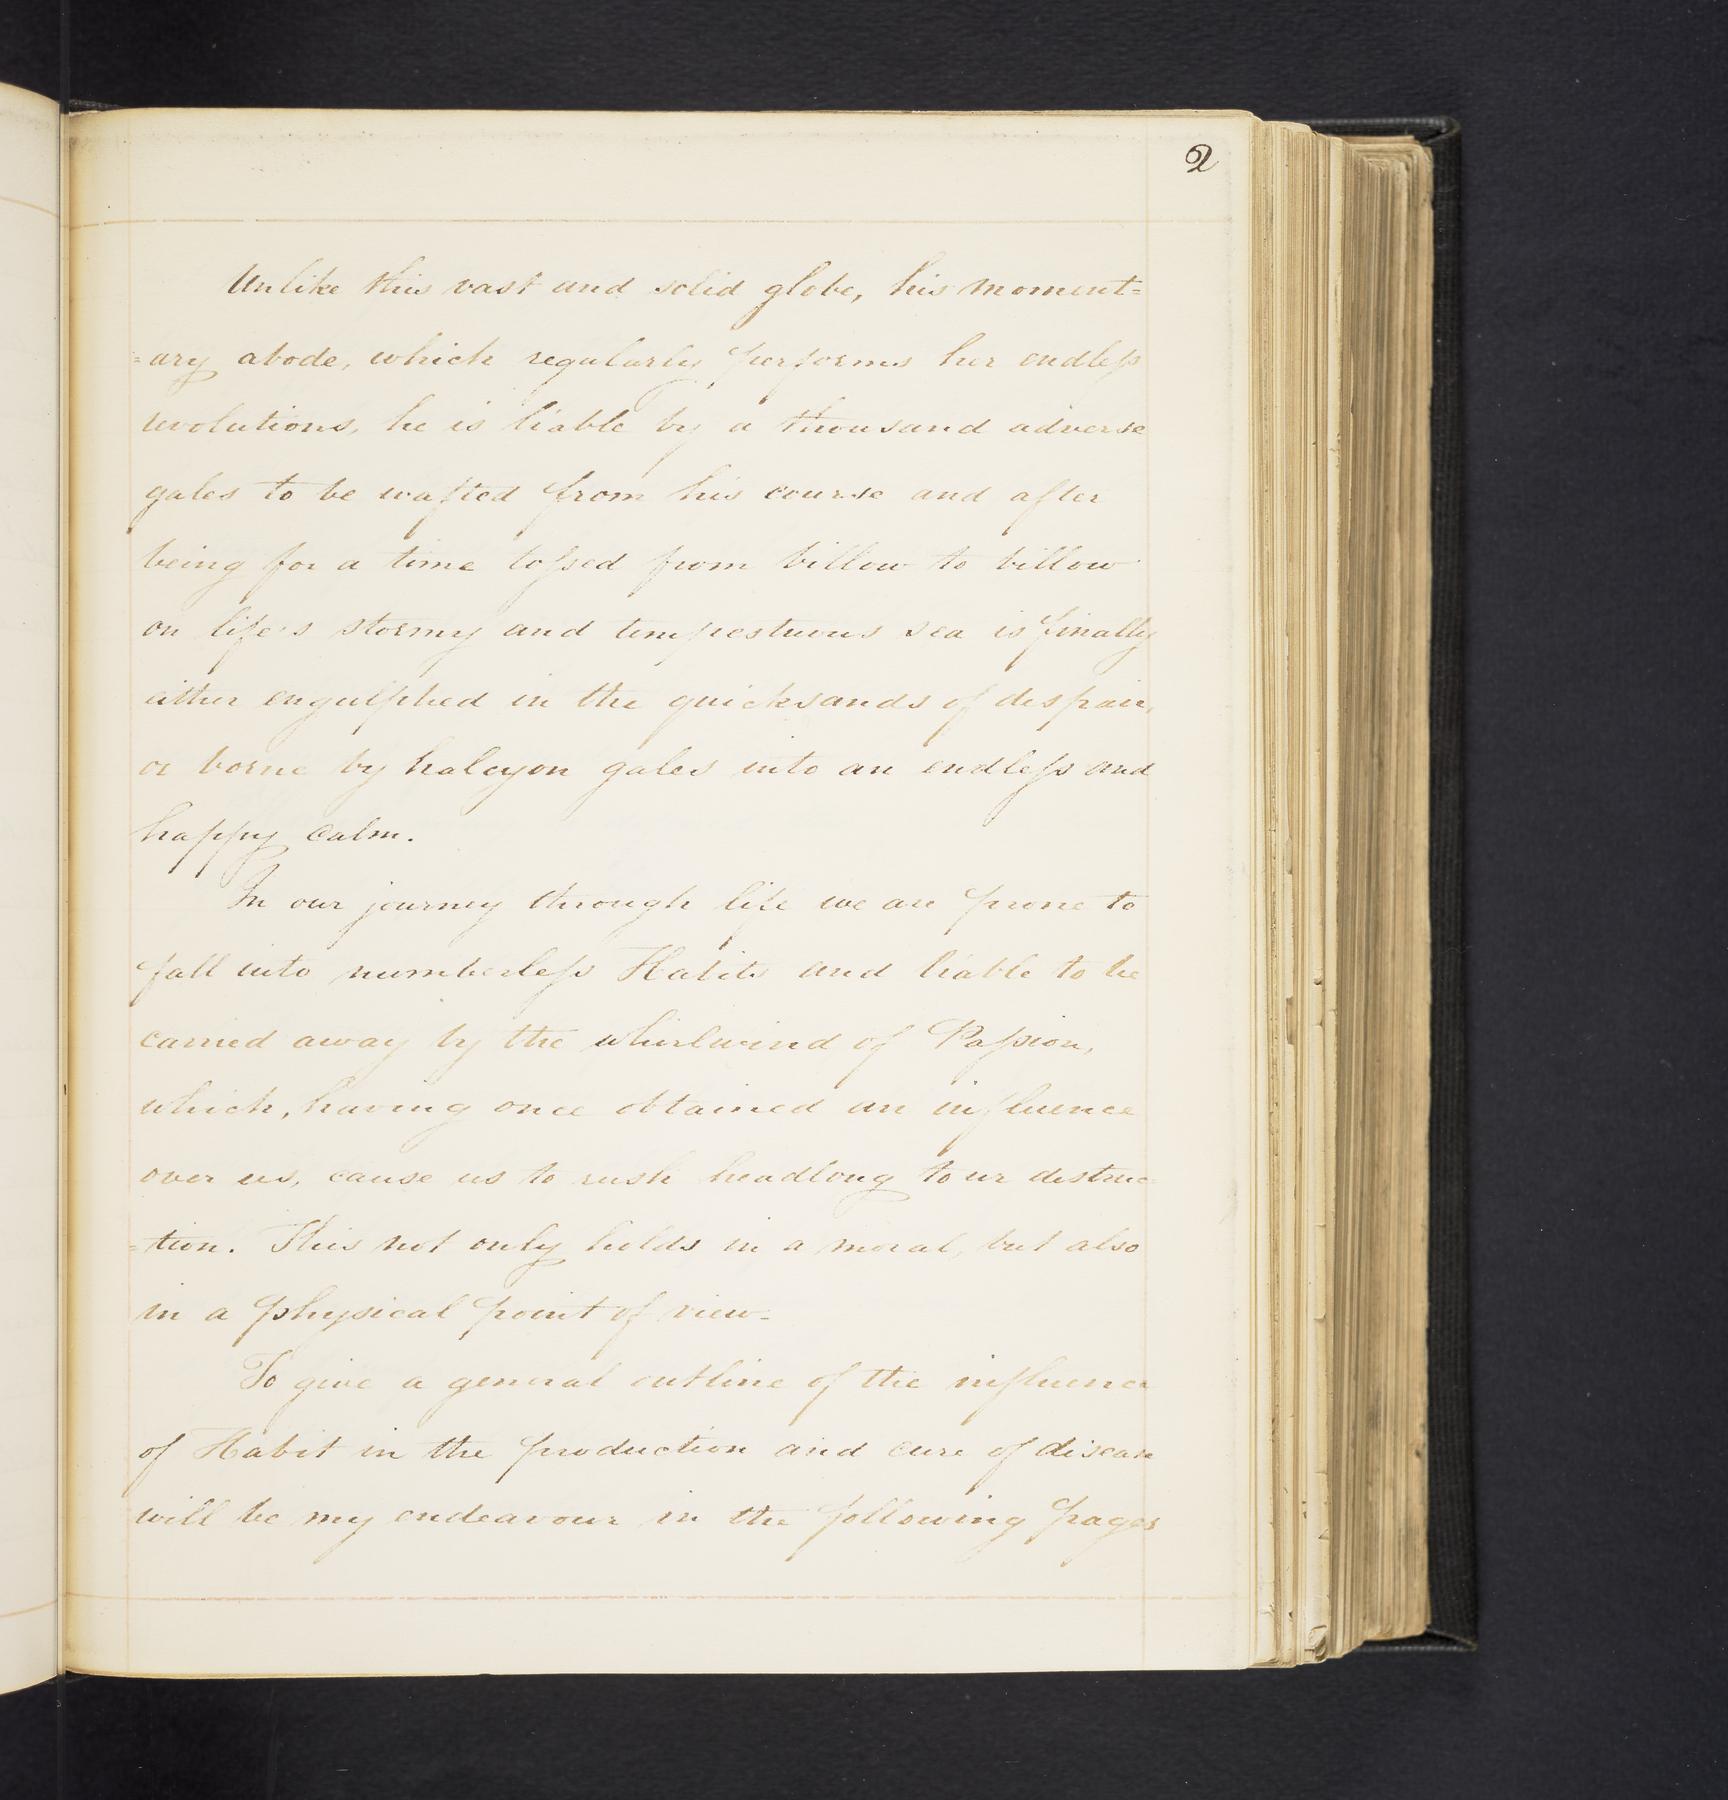 2
Unlike this vast and solid globe, his moment=
=ary abode, which regularly performs her endless
revolutions, he is liable by a thousand adverse
gales to be wafted from his course and after
being for a time tossed from billow to billow
on life's stormy and tempestuous sea is finally
either engulphed in the quicksands of despair,
or borne by halcyon gales into an endless and
happy calm.
In our journey through life we are prone to
fall into numberless Habits and liable to be
carried away by the whirlwind of Passion,
which, having once obtained an influence
over us, cause us to rush headlong to ur destruc=
=tion. This not only holds in a moral, but also
in a physical point of view.
To give a general outline of the influence
of Habit in the production and cure of disease
will be my endeavour in the following pages